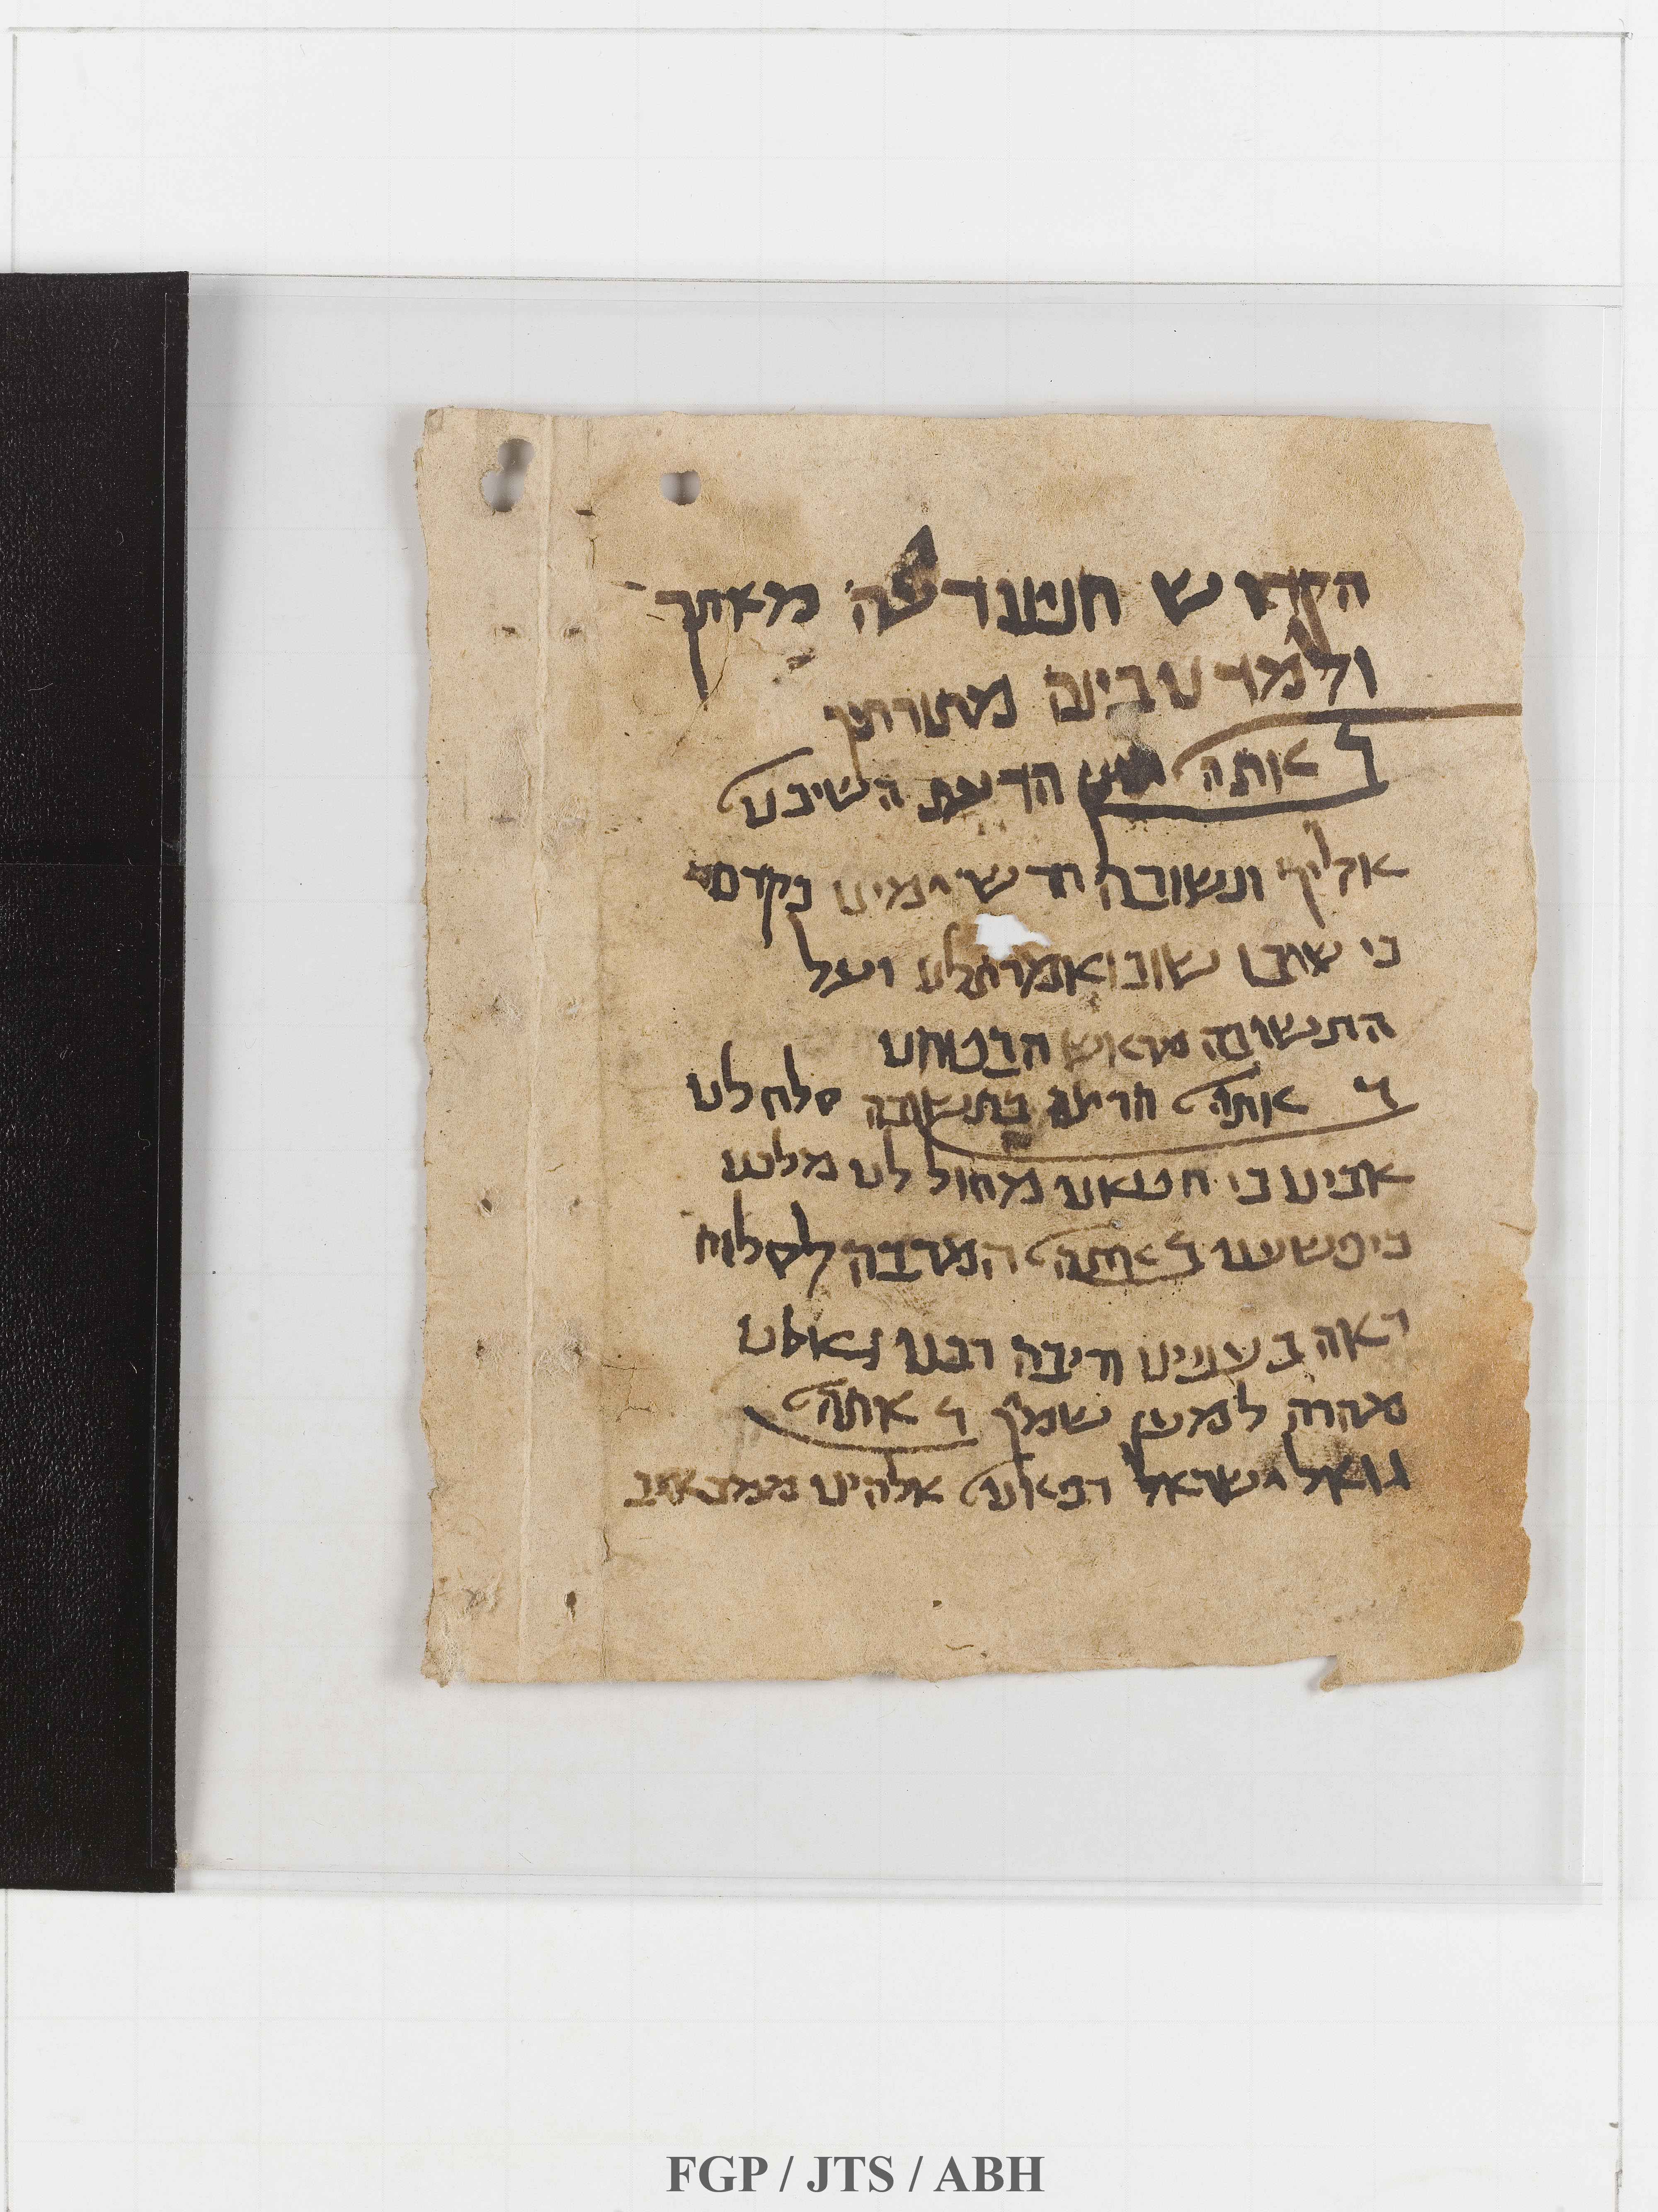 הקדוש חנינו דעה מאתך
ולמדנו בינה מתורתך
ב אותה הדעת השיבנו
אליך ונשובה חדש ימינו כקדם
כי שובו אמרת לנו ועל
התשובה מראש הבטחנו
ב אותה הרוצה בתשובה סלח לנו
אבינו כי חטאנו מחול לנו מלכנו
כי פשענו ב אותה המרבה לסלוח
ראה בעניינו וריבה רבנו גאלנו
מהרה למען שמך ב אתה
גואל ישראל רפאנו אלהינו ממכאוב
FGP / JTS / ABH